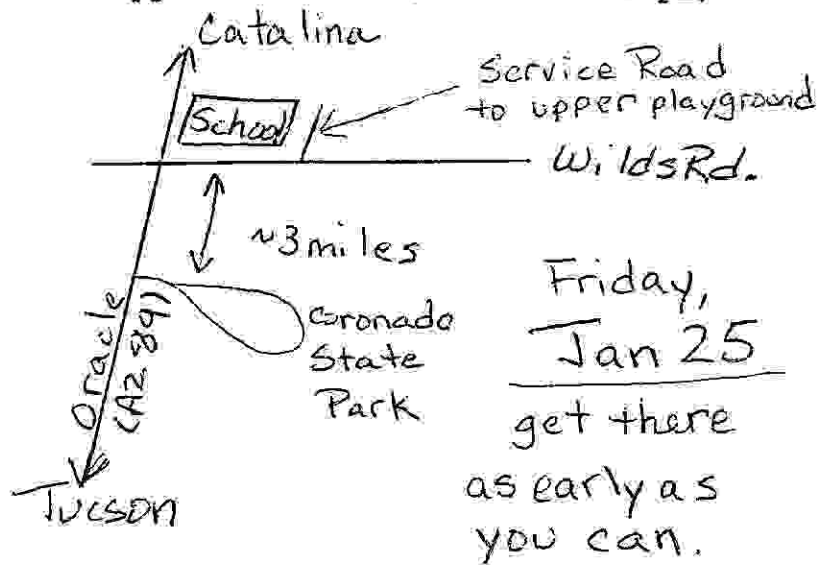 Catalina
School
Service Road
to upper playground
Wilds Rd.
~3 miles
Oracle
(AZ 89)
Coronado
State
Park
Tucson
Friday,
Jan 25
get there
as early as
you can.